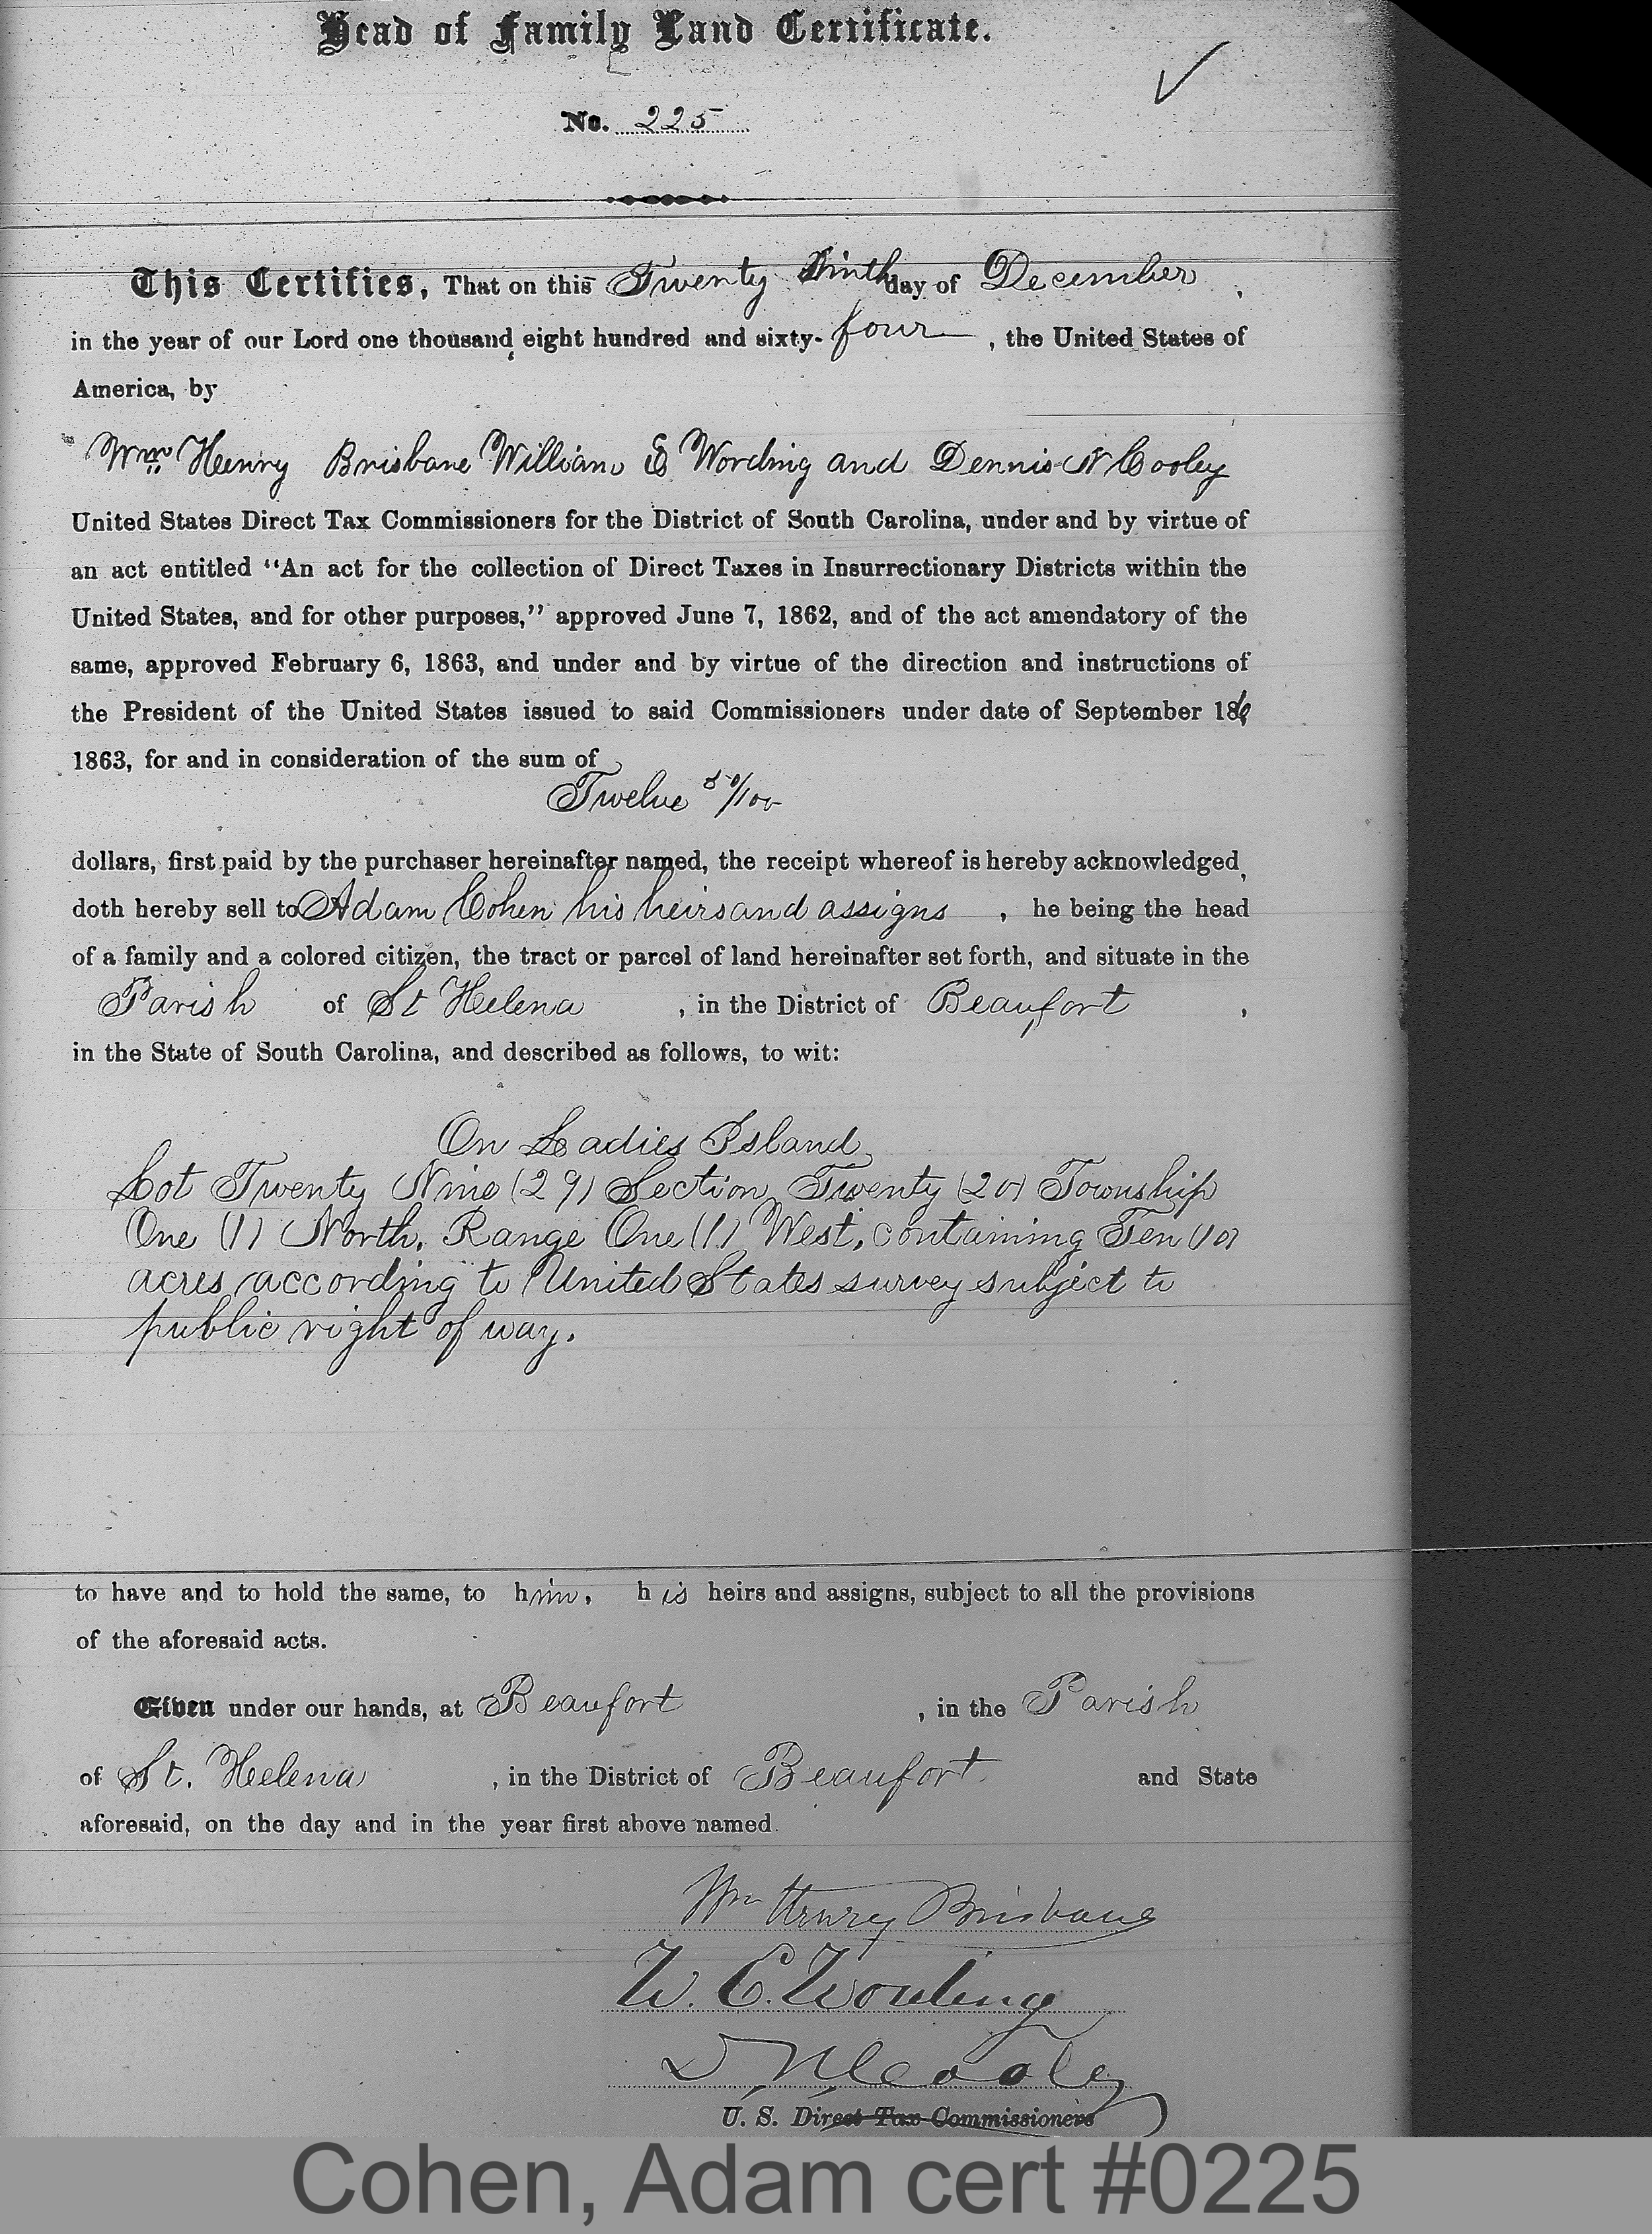 Head of Family Land Certificate.
No. 225
This Certifies, That on this Twenty Ninth day of December,
in the year of our Lord one thousand eight hundred and sixty-four, the United States of
America, by
Wm Henry Brisbane William E Wording and Dennis N Cooley
United States Direct Tax Commissioners for the District of South Carolina, under and by virtue of
an act entitled "An act for the collection of Direct Taxes in Insurrectionary Districts within the
United States, and for other purposes," approved June 7, 1862, and of the act amendatory of the
same, approved February 6, 1863, and under and by virtue of the direction and instructions of
the President of the United States issued to said Commissioners under date of September 16
1863, for and in consideration of the sum of
Twelve 50/100
dollars, first paid by the purchaser hereinafter named, the receipt whereof is hereby acknowledged,
doth hereby sell to Adam Cohen his heirs and assigns, he being the head
of a family and a colored citizen, the tract or parcel of land hereinafter set forth, and situate in the
Parish of St Helena, in the District of Beaufort,
in the State of South Carolina, and described as follows, to wit:
On Ladies Island
Lot Twenty Nine (29) Section Twenty (20) Township
One (1) North, Range One (1) West, containing Ten (10)
acres, according to United States survey subject to
public right of way.
to have and to hold the same, to him, his heirs and assigns, subject to all the provisions
of the aforesaid acts.
Given under our hands, at Beaufort, in the Parish
of St. Helena, in the District of Beaufort and State
aforesaid, on the day and in the year first above named.
Wm Henry Brisbane
W. E. Wording
D N Cooley
U. S. Direct Tax Commissioners
Cohen, Adam cert #0225